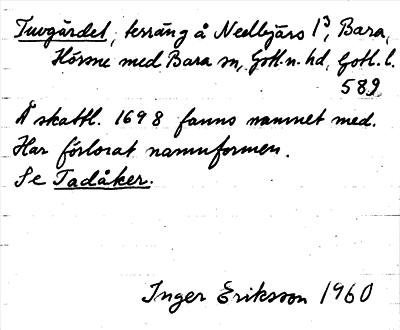 Tuvgärdet, terräng å Nedbjärs 1³, Bara,
Hörsne med Bara sn, Gotl. n. hd, Gotl. l.
589
Å skattl. 1698 fanns namnet med.
Har förlorat namnformen.
Se Tadåker.
Inger Eriksson 1960